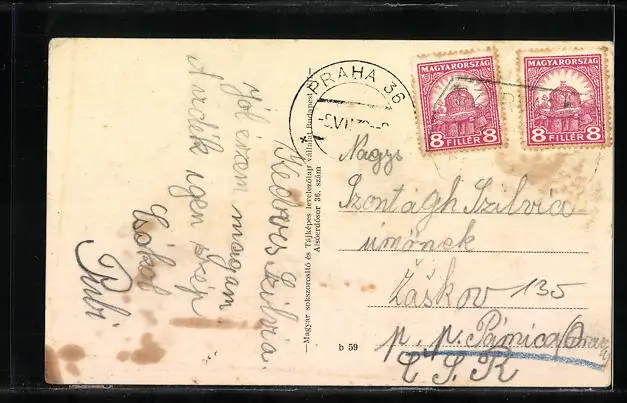 Kedves Szilvia.
Jól érzem magam
A vidék igen szép
Csókol
Pubi
—Magyar sokszorosító és Tájképes levelezőlap vállalat Budapest
Alsóerdősor 36. szám
b 59
PRAHA 36
MAGYARORSZÁG
8 FILLÉR 8
MAGYARORSZÁG
8 FILLÉR 8
Nagys
Szontágh Szilvia
úrnőnek
Žáškov 135
p. p. Párnica
Č S R